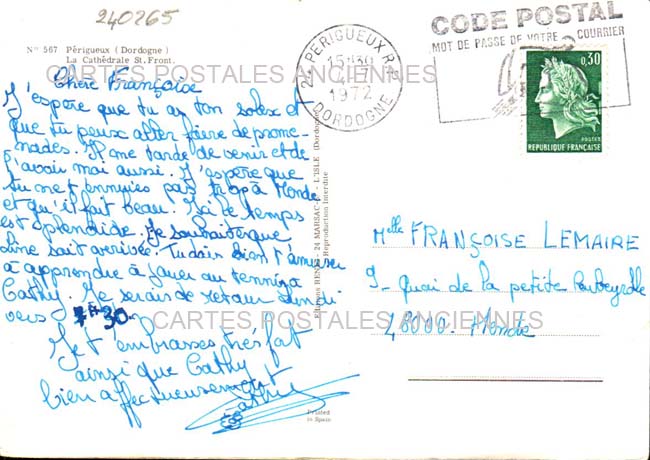 240265
N° 567 Périgueux (Dordogne)
La Cathédrale St. Front.
CARTES POSTALES ANCIENNES
Chère Françoise
J'espère que tu as ton solex et
que tu peux aller faire de prome-
nades. Il me tarde de venir et de
l'avoir moi aussi. J'espère que
tu ne t'ennuies pas trop à Mende
et qu'il fait beau. Ici le temps
est splendide. Je souhaite que
Line soit arrivée. Tu dois bien t'amuser
à apprendre à jouer au tennis à
Cathy. Je serais de retour lundi
vers 7H30.
CARTES POSTALES ANCIENNES
Je t'embrasse très fort
ainsi que Cathy
bien affectueusement
Editions RENÉ - 24 MARSAC-s-L'ISLE (Dordogne)
Reproduction Interdite
Printed
in Spain
24 PERIGUEUX R.P.
1972
DORDOGNE
CODE POSTAL
MOT DE PASSE DE VOTRE COURRIER
0,30
POSTES
REPUBLIQUE FRANÇAISE
Melle FRANÇOISE LEMAIRE
9 Quai de la petite Roubeyrolle
48000. Mende